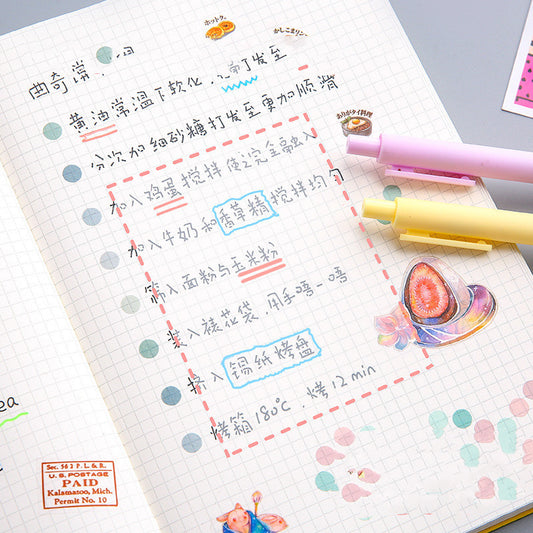 ホットケ
かしこまリン
曲奇
黄油常温下软化,　打发至
分次加细砂糖打发至更加顺滑
ありがタイ料理
加入鸡蛋搅拌使之完全融入
加入牛奶和香草精搅拌均匀
筛入面粉与玉米粉
装入裱花袋,用手唔一唔
挤入锡纸烤盘
烤箱180℃,烤12min
ea
Sec. 562 P. L. & R.
U. S. POSTAGE
PAID
Kalamazoo, Mich.
Permit No. 10